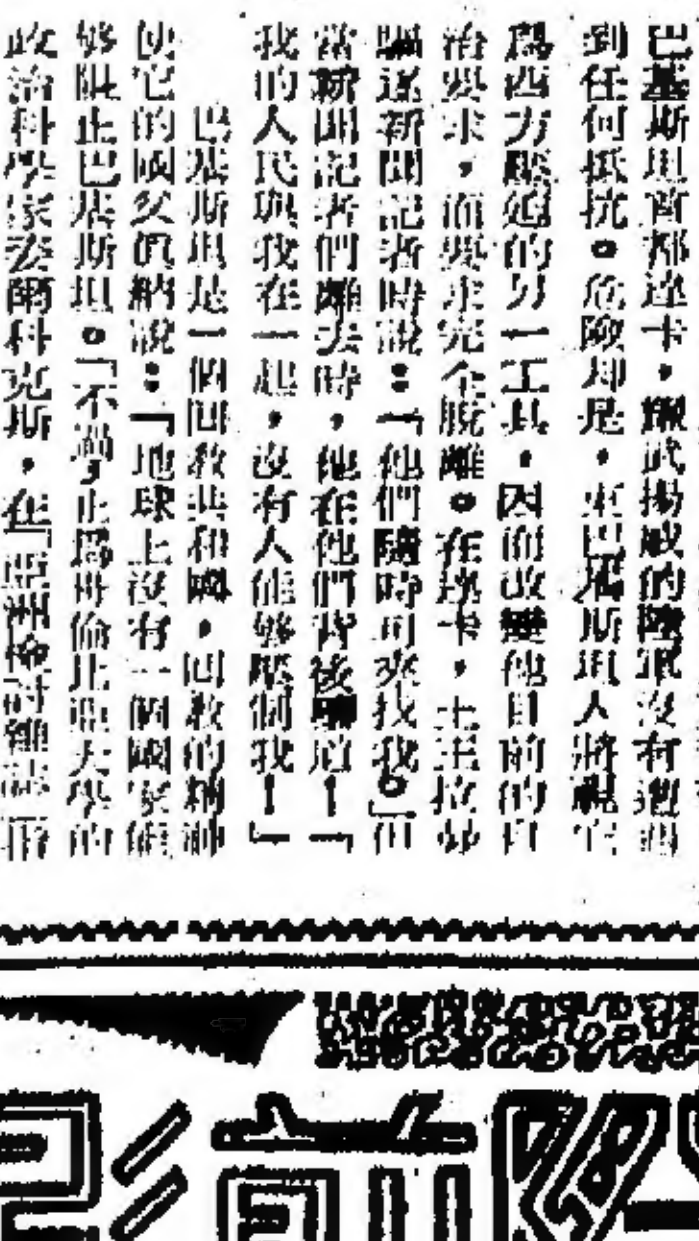 巴基斯坦首都達卡，耀武揚威的陸軍沒有遭遇
到任何抵抗。危險却是，東巴基斯坦人將視它
爲西方壓迫的另一工具，因而改變他目前的自
治要求，而要求完全脫離。在達卡，
囑送新聞記者時說：「他們隨時可來找我。」但
當新聞記者們離去時，他在他們背後道！「
我的人民與我在一起，沒有人能够壓制我！」
巴基斯坦是一個回敎共和國，回敎的精神
使它的國父眞納說：「地球上沒有一個國家能
够阻止巴基斯坦。」不過，哥倫比亞大學的
政治科學家韋爾科克斯，在「亞洲檢討雜誌」